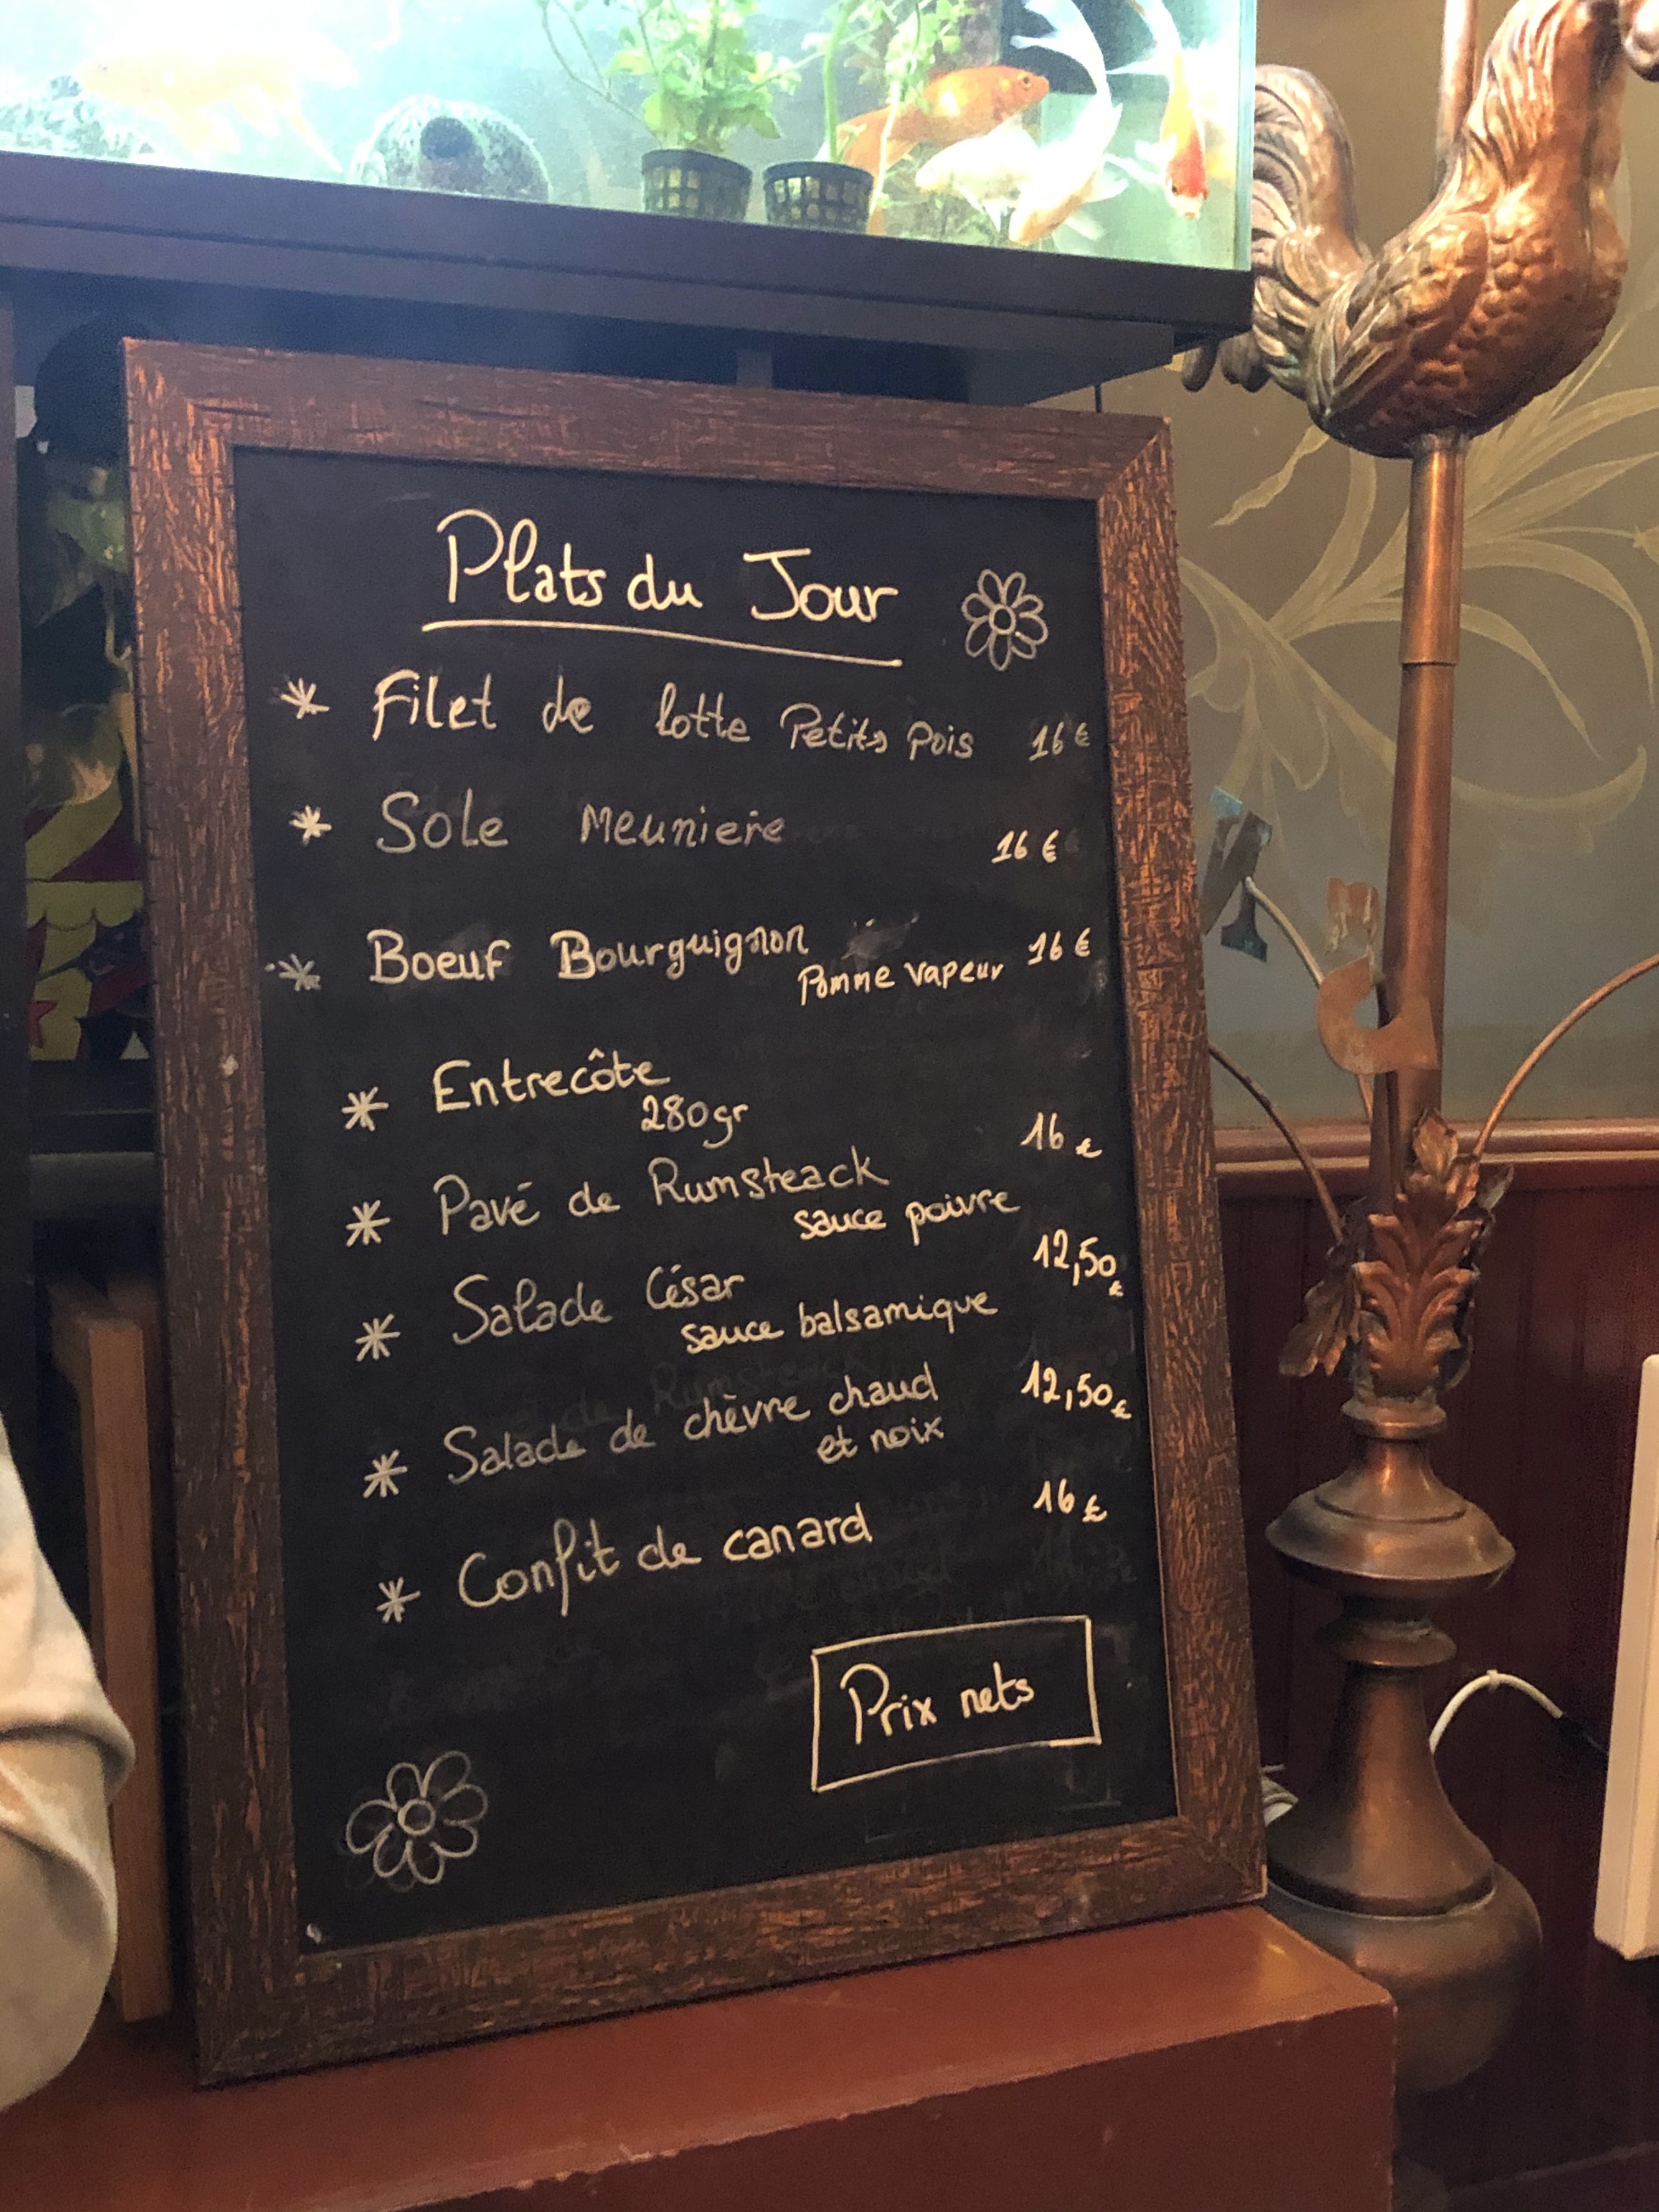 Plats du Jour
* Filet de lotte Petits Pois 16 €
* Sole Meuniere 16 €
* Boeuf Bourguignon 16 €
Pomme vapeur
* Entrecôte
280gr
* Pavé de Rumsteack 16 €
sauce poivre
* Salade César 12,50 €
sauce balsamique
* Salade de chèvre chaud 12,50 €
et noix
* Confit de canard 16 €
Prix nets